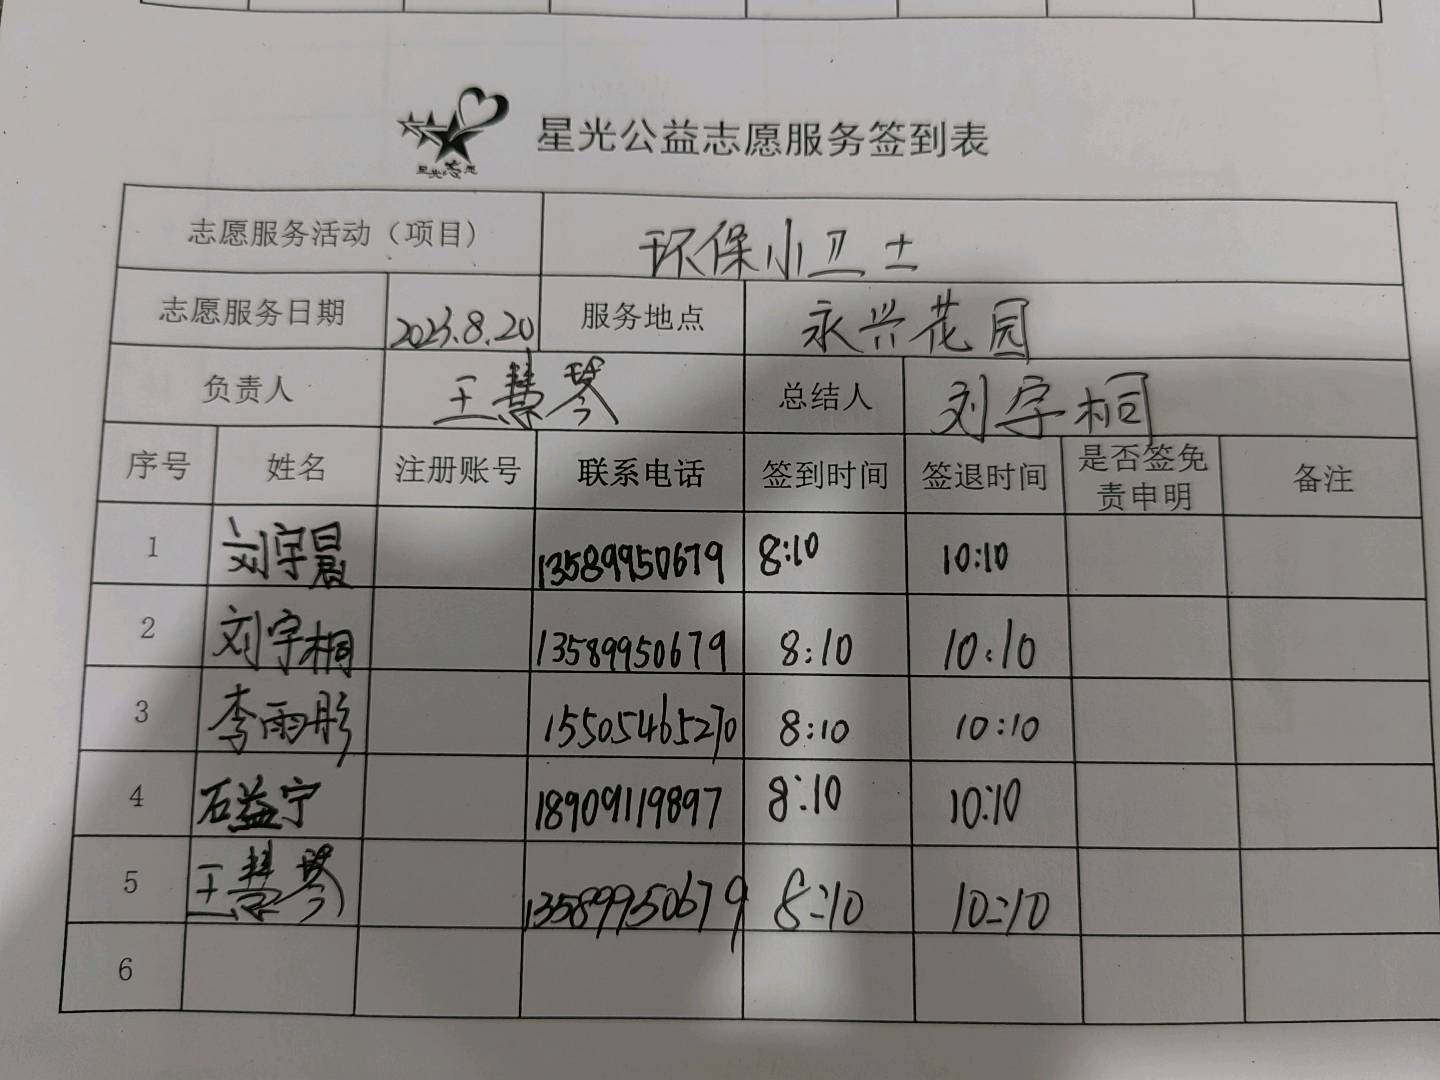 星光公益志愿服务签到表
星光志愿
志愿服务活动（项目） 环保小卫士
志愿服务日期 2023.8.20 服务地点 永兴花园
负责人 王慧琴 总结人 刘宇桐
序号 姓名 注册账号 联系电话 签到时间 签退时间 是否签免责申明 备注
1 刘宇晨 13589950679 8:10 10:10
2 刘宇桐 13589950679 8:10 10:10
3 李雨彤 15505465270 8:10 10:10
4 石益宁 18909119897 8:10 10:10
5 王慧琴 13589950679 8:10 10:10
6